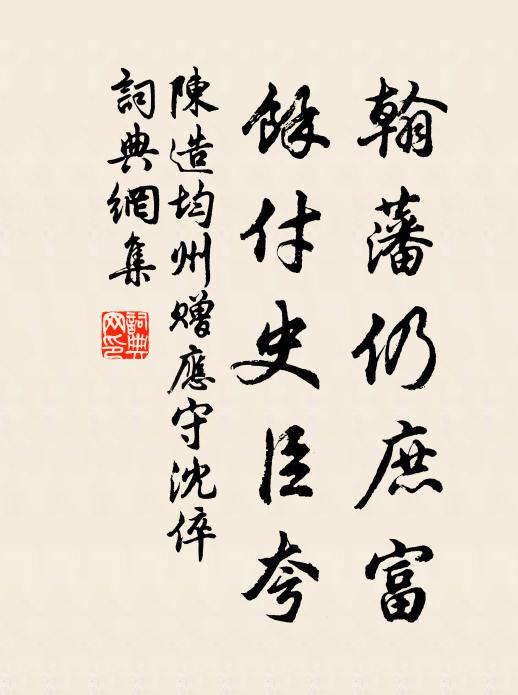 翰藩仍庶富
餘付史臣夸
陳造均州贈應守沈倅
詞典網集
詞典网印